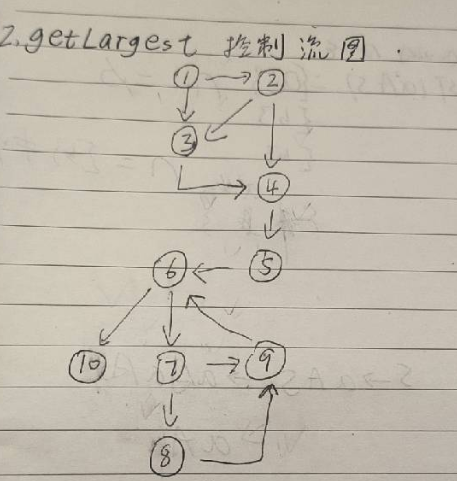 2. getLargest 控制流图.
① → ②
③
④
⑥ ← ⑤
⑩ ⑦ → ⑨
⑧